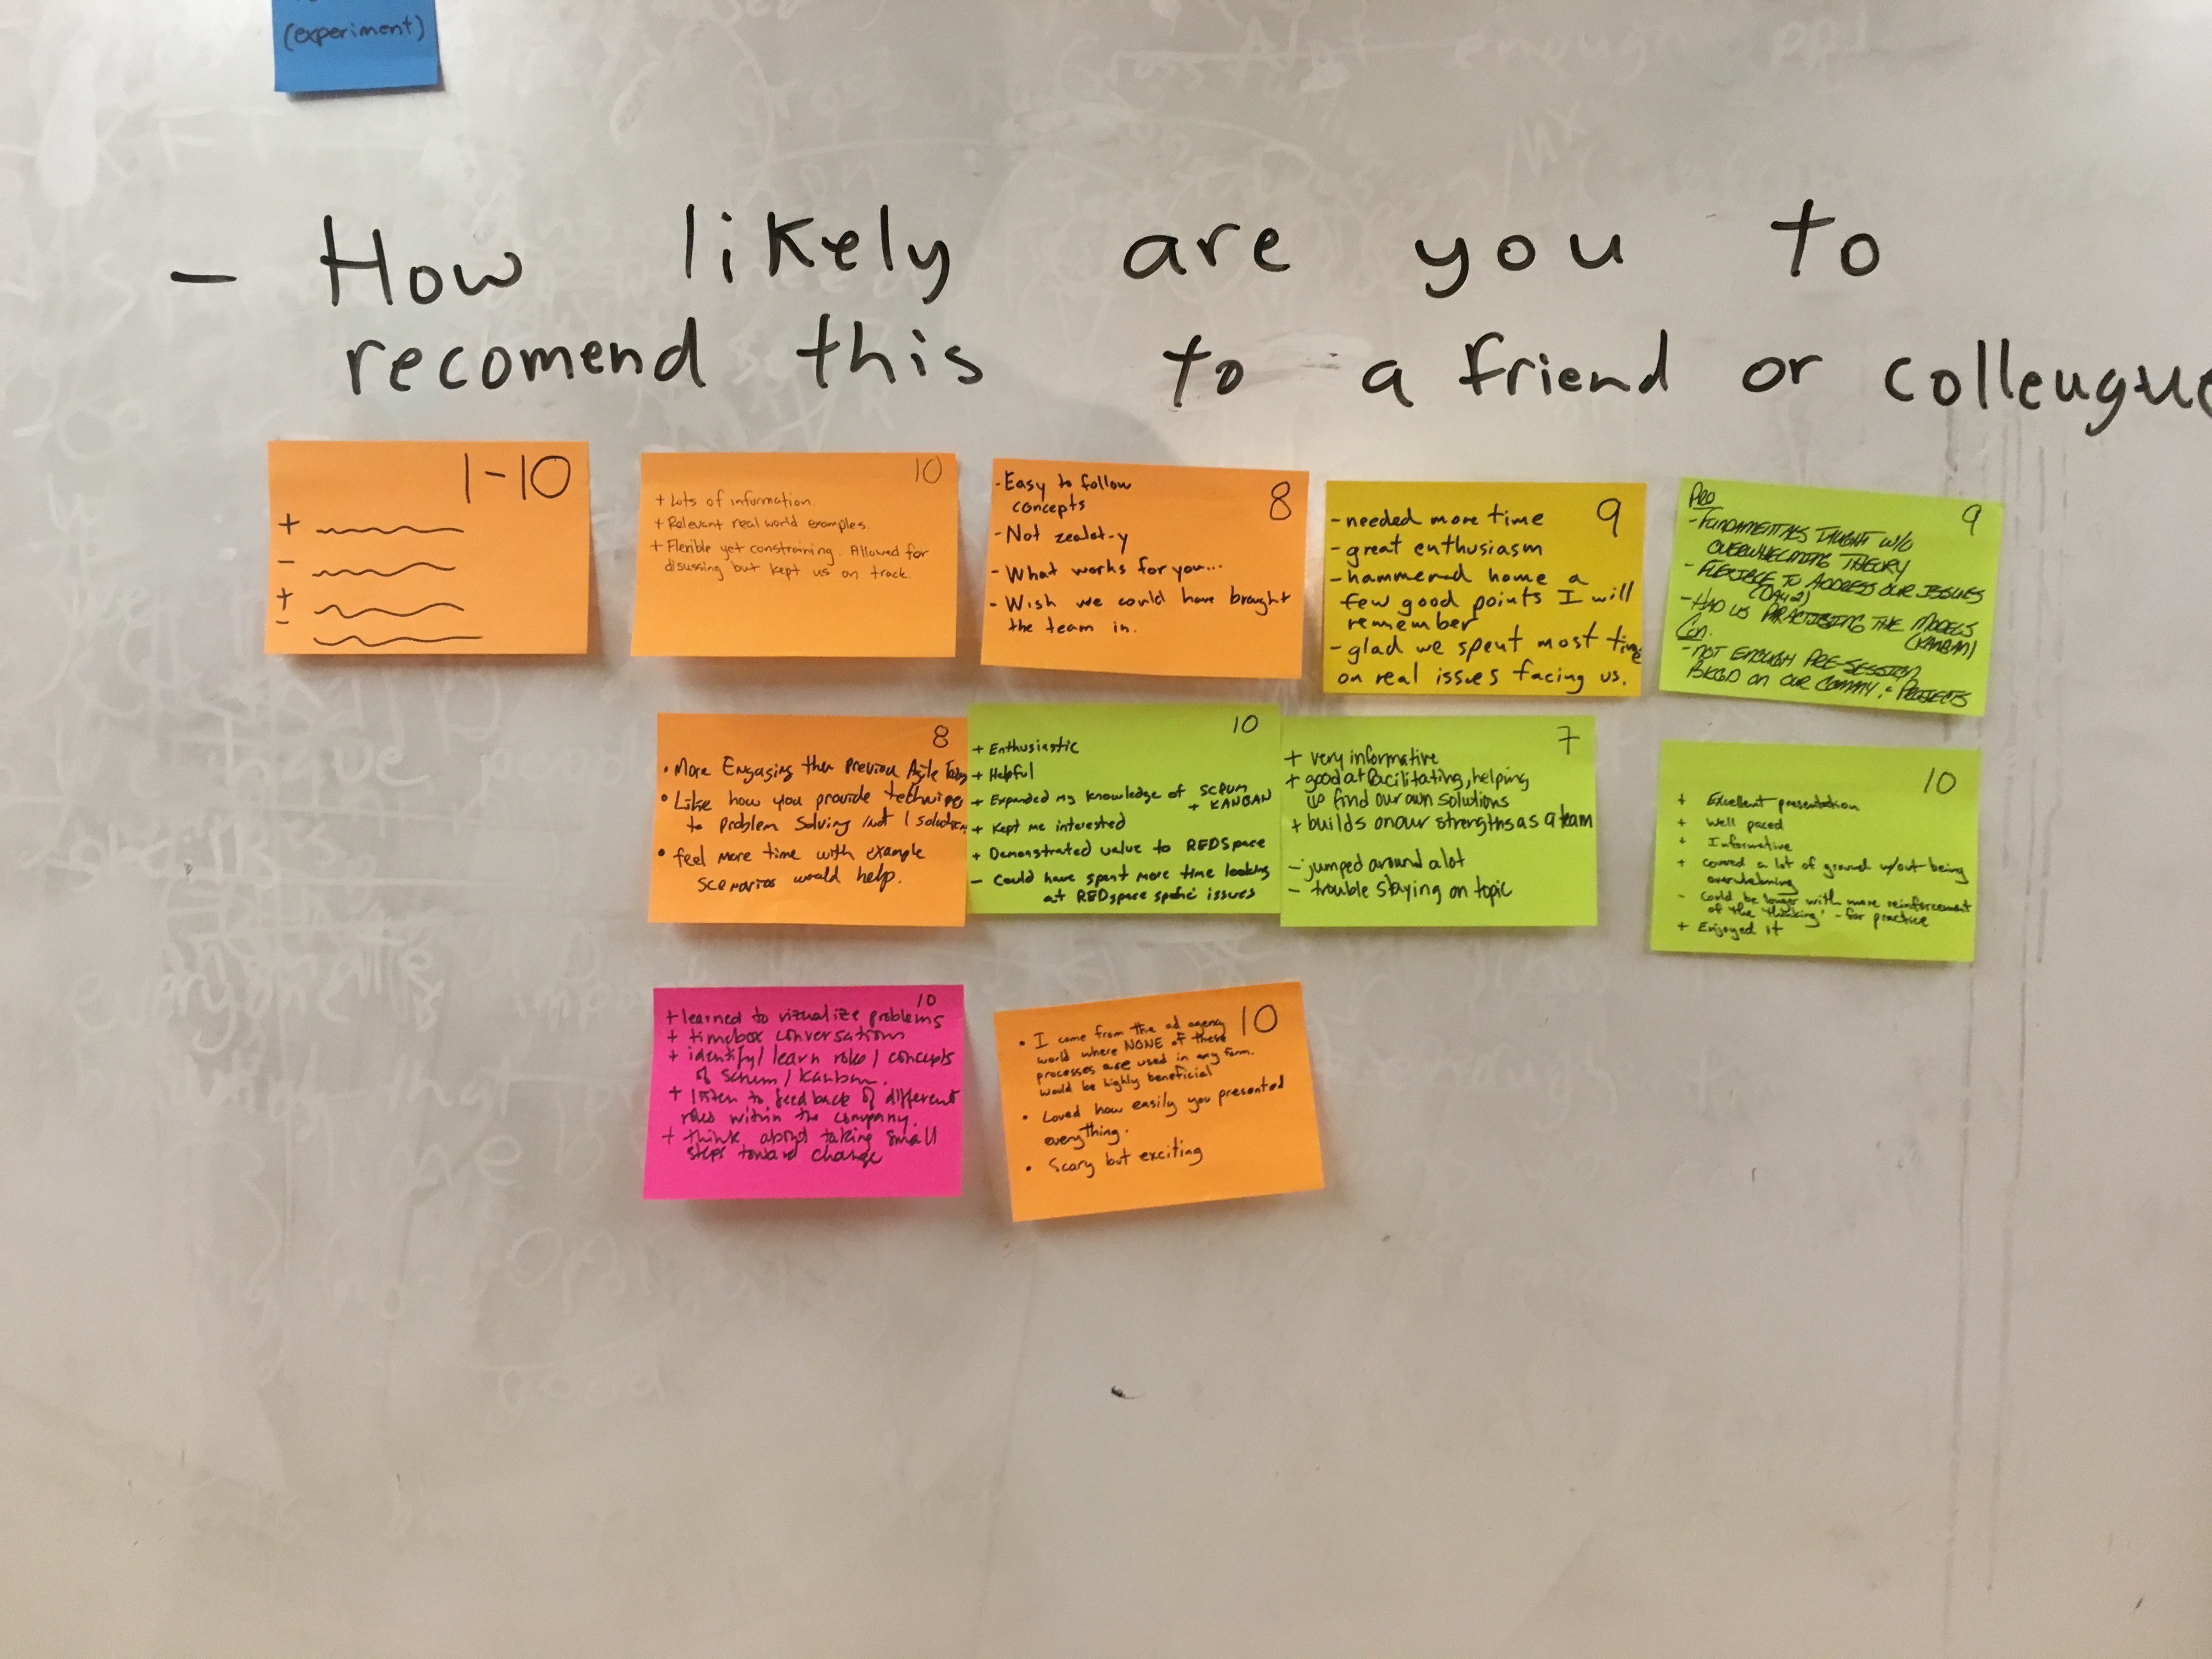 (experiment)
- How likely are you to
recomend this to a friend or colleugue
1-10
+
-
+
-
10
+ Lots of information.
+ Relevant real world examples.
+ Flexible yet constraining. Allowed for
disussing but kept us on track.
8
- Easy to follow
concepts
- Not zealot-y
- What works for you...
- Wish we could have brought
the team in.
9
- needed more time
- great enthusiasm
- hammered home a
few good points I will
remember
- glad we spent most time
on real issues facing us.
9
PRO
- FUNDAMENTALS TAUGHT W/O
OVERWHELMING THEORY
- FLEXIBLE TO ADDRESS OUR ISSUES
(DAY 2)
- HAD US PRACTISING THE MODELS
(KANBAN)
CON.
- NOT ENOUGH PRE-SESSION
BKGD ON OUR COMPANY & PROJECTS
8
• More Engaging then Previous Agile
• Like how you provide techniques
to problem solving not 1 solution
• feel more time with example
scenarios would help.
10
+ Enthusiastic
+ Helpful
+ Expanded my knowledge of SCRUM
+ KANBAN
+ Kept me interested
+ Demonstrated value to REDSpace
- Could have spent more time looking
at REDspace issues
7
+ very informative
+ good at facilitating, helping
us find our own solutions
+ builds on our strengths as a team
- jumped around a lot
- trouble staying on topic
10
+ Excellent presentation
+ Well paced
+ Informative
+ covered a lot of ground w/out being
overwhelming
- Could be longer with more reinforcement
of the 'thinking' - for practice
+ Enjoyed it
10
+ learned to vizualize problems
+ timebox conversations
+ identify/ learn roles / concepts
of scrum / kanban.
+ listen to feedback of different
roles within the company.
+ think about taking small
steps toward change
10
• I come from the ad agency
world where NONE of these
processes are used in any form.
would be highly beneficial
• Loved how easily you presented
everything.
• Scary but exciting